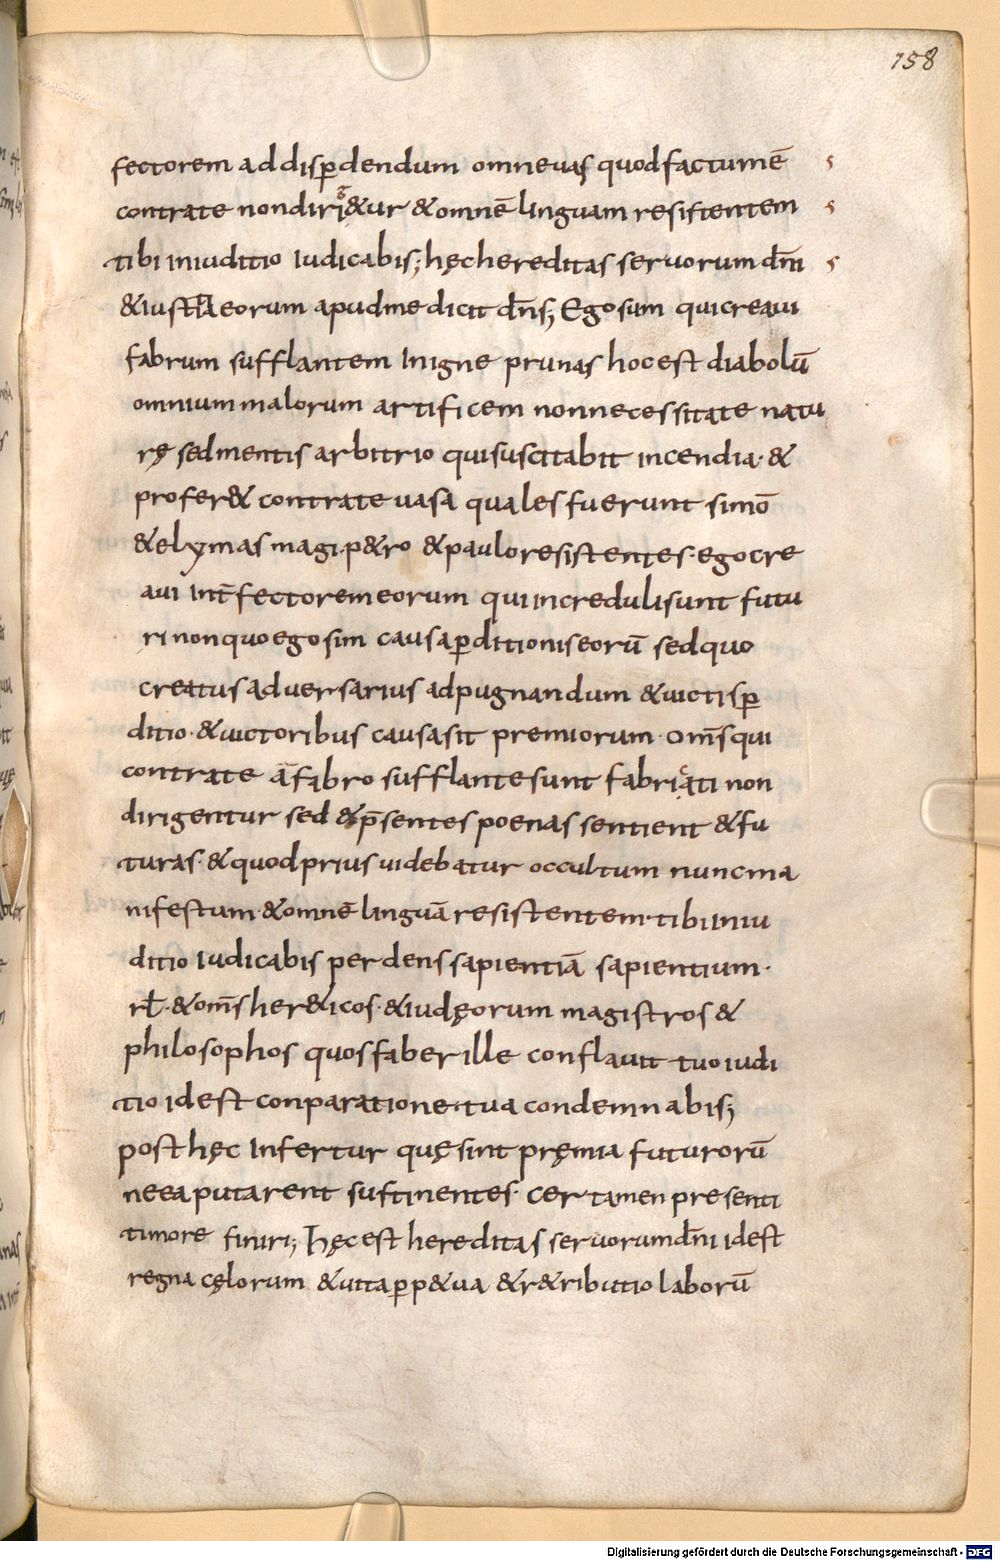 158
fectorem ad disp̄dendum omne uas quod factum ē
contra te non dirig&ur & omnē linguam resistentem
tibi in iuditio iudicabis; hęc hereditas seruorum dn̄i
& iustitia eorum apud me dicit dn̄s; Ego sum qui creaui
fabrum sufflantem In igne prunas hoc est diabolū
omnium malorum artificem non necessitate natu
rę sed mentis arbitrio qui suscitabit incendia· &
profer& contra te uasa quales fuerunt simō
& elymas magi p&ro & paulo resistentes· ego cre
aui int̄fectorem eorum qui increduli sunt futu
ri non quo ego sim causa p̄ditionis eorū sed quo
creatus aduersarius ad pugnandum & uictis p̄
ditio· & uictoribus causa sit premiorum· om̄s qui
contra te ā fabro sufflante sunt fabricati non
dirigentur sed & p̄sentes poenas sentient & fu
turas· & quod prius uidebatur occultum nunc ma
nifestum· & omnē linguā resistentem· tibi in iu
ditio iudicabis perdens sapientiā sapientium·
rł· & om̄s her&icos· & iudęorum magistros &
philosophos quos faber ille conflauit tuo iudi
tio id est conparatione tua condemnabis;
post hęc Infertur quę sint pręmia futurorū
ne ea putarent sustinentes· certamen presenti
timore finiri; hęc est hereditas seruorum dn̄i id est
regna cęlorum & uita p̄p&ua & r&ributio laborū
Digitalisierung gefördert durch die Deutsche Forschungsgemeinschaft - DFG